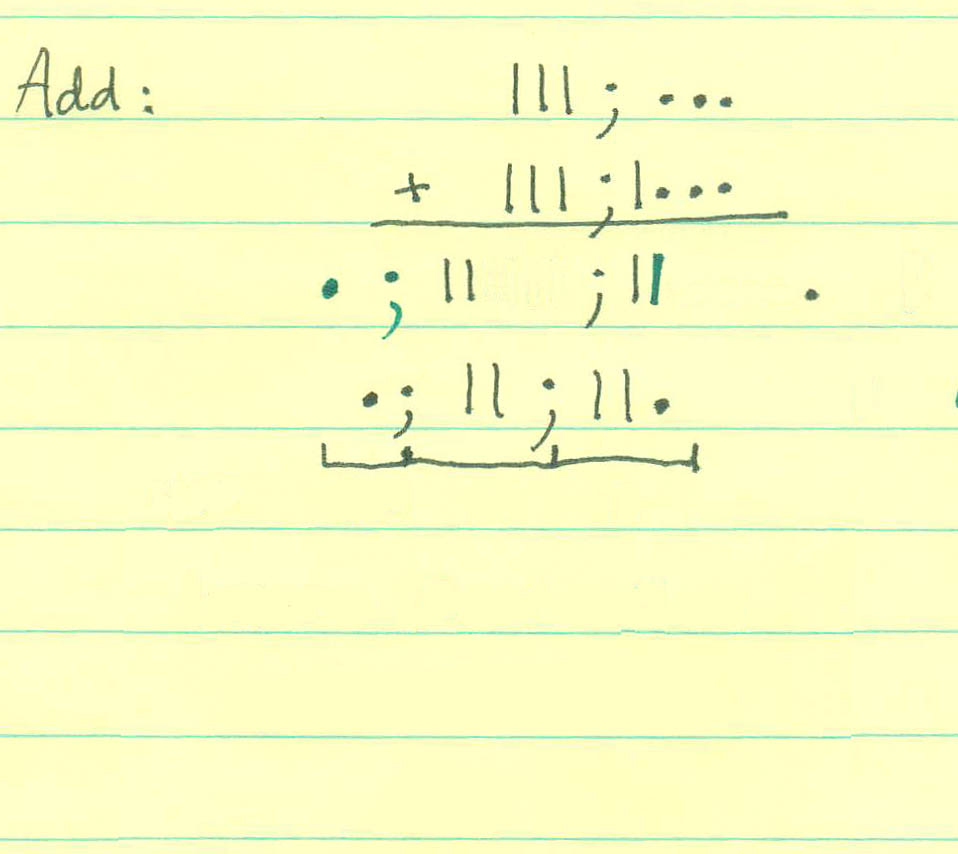 Add: ||| ; •••
+ ||| ; |•••
• ; || ; || •
• ; || ; || •